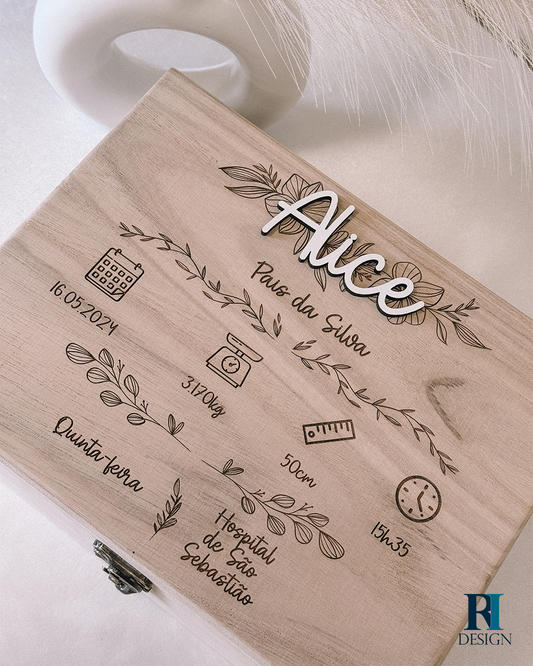 Alice
Pais da Silva
16.05.2024
3.170kg
50cm
15h35
Quinta-feira
Hospital
de São
Sebastião
RH
DESIGN